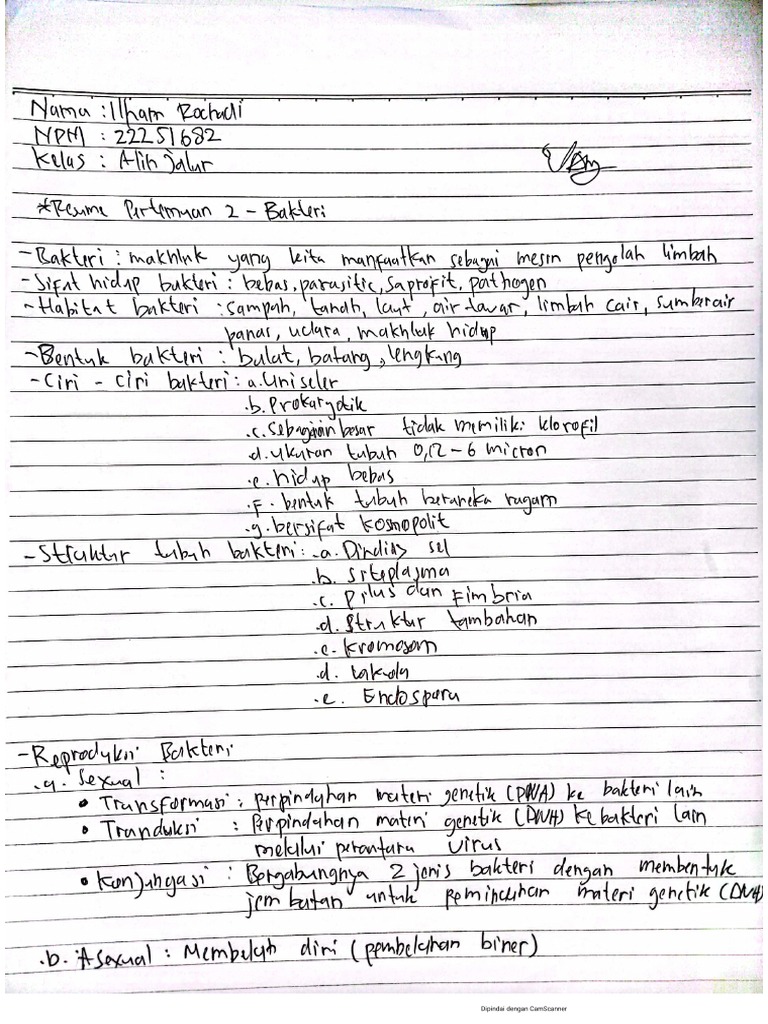 Nama : Ilham Rochadi
NPM : 22251682
Kelas : Alih Jalur
*Resume Pertemuan 2 - Bakteri
- Bakteri : makhluk yang kita manfaatkan sebagai mesin pengolah limbah
- Sifat hidup bakteri : bebas, parasitic, saprofit, pathogen
- Habitat bakteri : sampah, tanah, laut, air tawar, limbah cair, sumber air
panas, udara, makhluk hidup
- Bentuk bakteri : bulat, batang, lengkung
- Ciri - ciri bakteri : a. Uniseler
.b. Prokaryotik
.c. Sebagian besar tidak memiliki klorofil
d. ukuran tubuh 0,12 - 6 micron
.e. hidup bebas
.F. bentuk tubuh beraneka ragam
.g. bersifat kosmopolit
- Struktur tubuh bakteri : .a. Dinding sel
.b. Sitoplasma
.c. Pilus dan Fimbria
.d. Struktur tambahan
.e. Kromosom
.d. Vakola
.e. Endospora
- Reproduksi Bakteri
.a. Sexual :
• Transformasi : perpindahan materi genetik (DNA) ke bakteri lain
• Tranduksi : Perpindahan materi genetik (DNA) ke bakteri lain
melalui perantara virus
• Konjungasi : Bergabungnya 2 jenis bakteri dengan membentuk
jembatan untuk pemindahan materi genetik (DNA)
.b. Asexual : Membelah diri (pembelahan biner)
Dipindai dengan CamScanner